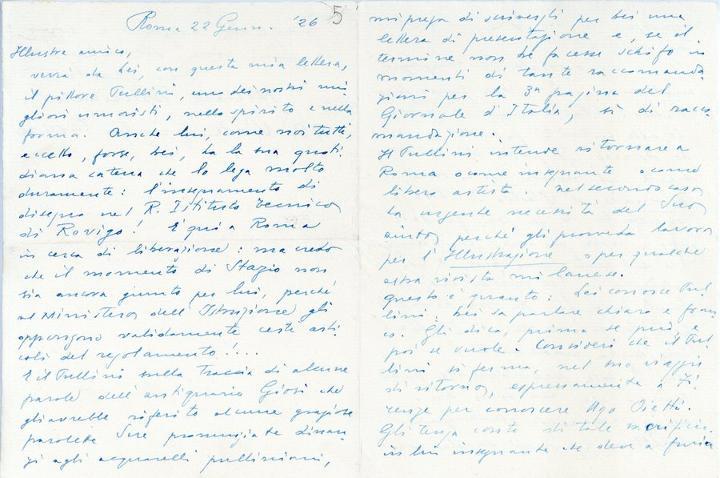 Roma 22 Genn. '26
5
Illustre amico,
verrà da Lei, con questa mia lettera,
il pittore Pullini, uno dei nostri mi,
gliori umoristi, nello spirito e nella
forma. Anche lui, come noi tutti,
eccetto, forse, Lei, ha la sua quoti-
diana catena che lo lega molto
duramente: l'insegnamento di
disegno nel R. Istituto Tecnico
di Rovigo! È qui a Roma
in cerca di liberazione: ma credo
che il momento di
sia ancora giunto per lui, perché
al Ministero dell'Istruzione gli
oppongono validamente certi arti
coli del regolamento!...
E il Pullini sulla traccia di alcune
parole dell'antiquario Giosi che
gli avrebbe riferito alcune graziose
parolete Sue pronunziate dinan-
zi agli acquarelli pulliniani,
mi prega di scrivergli per Lei una
lettera di presentazione e, se il
termine non Le facesse schifo in
momenti di tante raccomanda
zioni per la 3a pagina del
Giornale d'Italia, sì di racco
mandazione.
Il Pullini intende ritornare a
Roma o come insegnante o come
libero artista. Nel secondo caso
ha urgente necessità del Suo
aiuto, perché gli provveda lavoro
per l'Illustrazione o per qualche
altra rivista milanese.
Questo è quanto: Lei conosce Pul
lini: Lei sa parlare chiaro e fran
co. Gli dica, prima se può e
poi se vuole. Consideri che il Pul
lini si ferma, nel suo viaggio
di ritorno, espressamente a Fi
renze per conoscere Ugo Ojetti.
Gli tenga conto di tale sacrificio
in lui insegnante che deve a furia